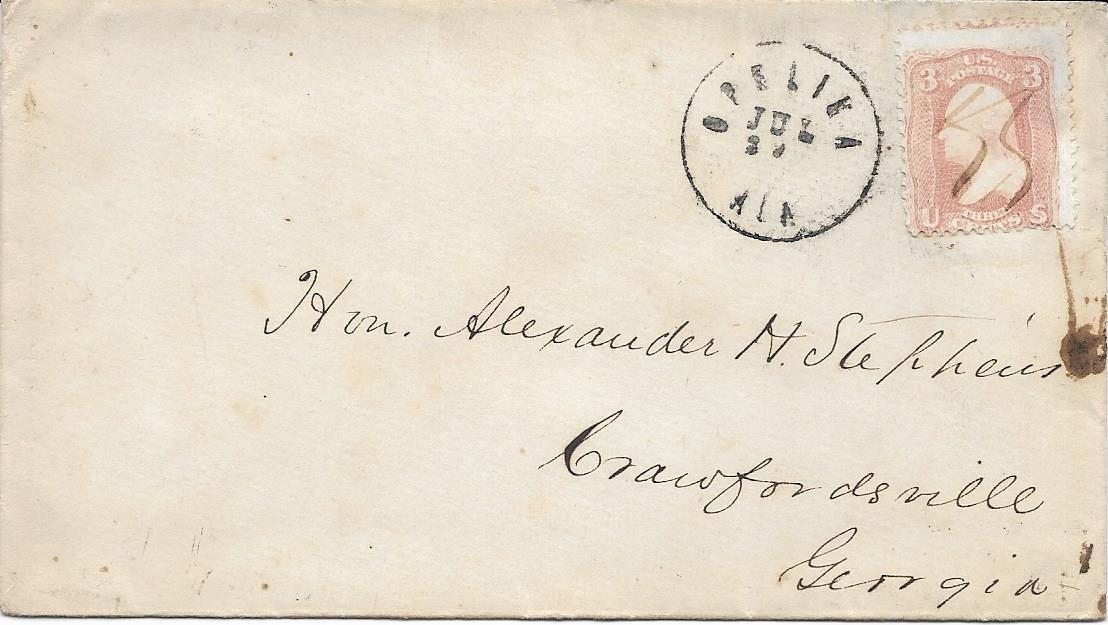 OPELIKA
JUL
ALA
U.S.
POSTAGE
3 3
U S
THREE
CENTS
Hon. Alexander H. Stephens
Crawfordsville
Georgia